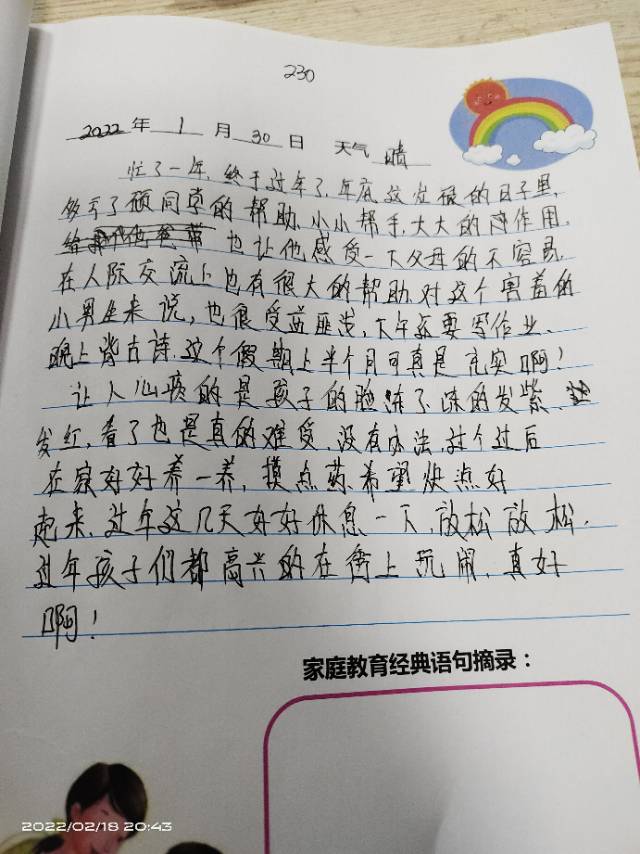 230
2022年 1月 30日 天气 晴
忙了一年,终于过年了,年底这发报的日子里,
多亏了硕同学的帮助,小小帮手,大大的作用,
也让他感受一下父母的不容易,
在人际交流上也有很大的帮助,对这个害羞的
小男生来说,也很受益匪浅,下午还要写作业、
晚上背古诗,这个假期上半个月可真是充实啊!
让人心疼的是孩子的脸冻了冻的发紫、
发红,看了也是真的难受,没有办法,过个过后
在家好好养一养,摸点药,希望快点好
起来,过年这几天好好休息一下,放松放松,
过年孩子们都高兴的在街上玩闹,真好
啊!
家庭教育经典语句摘录:
2022/02/18 20:43